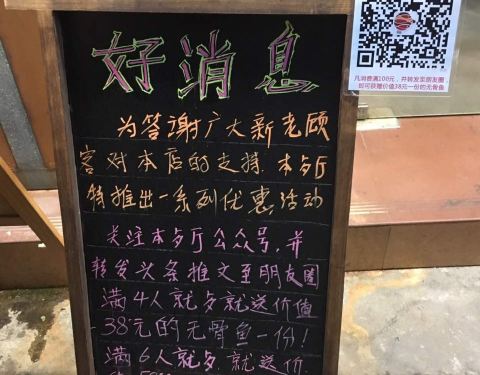 好消息
为答谢广大新老顾
客对本店的支持.本歺厅
特推出一系列优惠活动
关注本歺厅公众号,并
转发头条推文至朋友圈
满4人就歺就送价值
38元的无骨鱼一份!
满6人就歺.就送价
凡消费满100元,并转发至朋友圈
即可获赠价值38元一份的无骨鱼